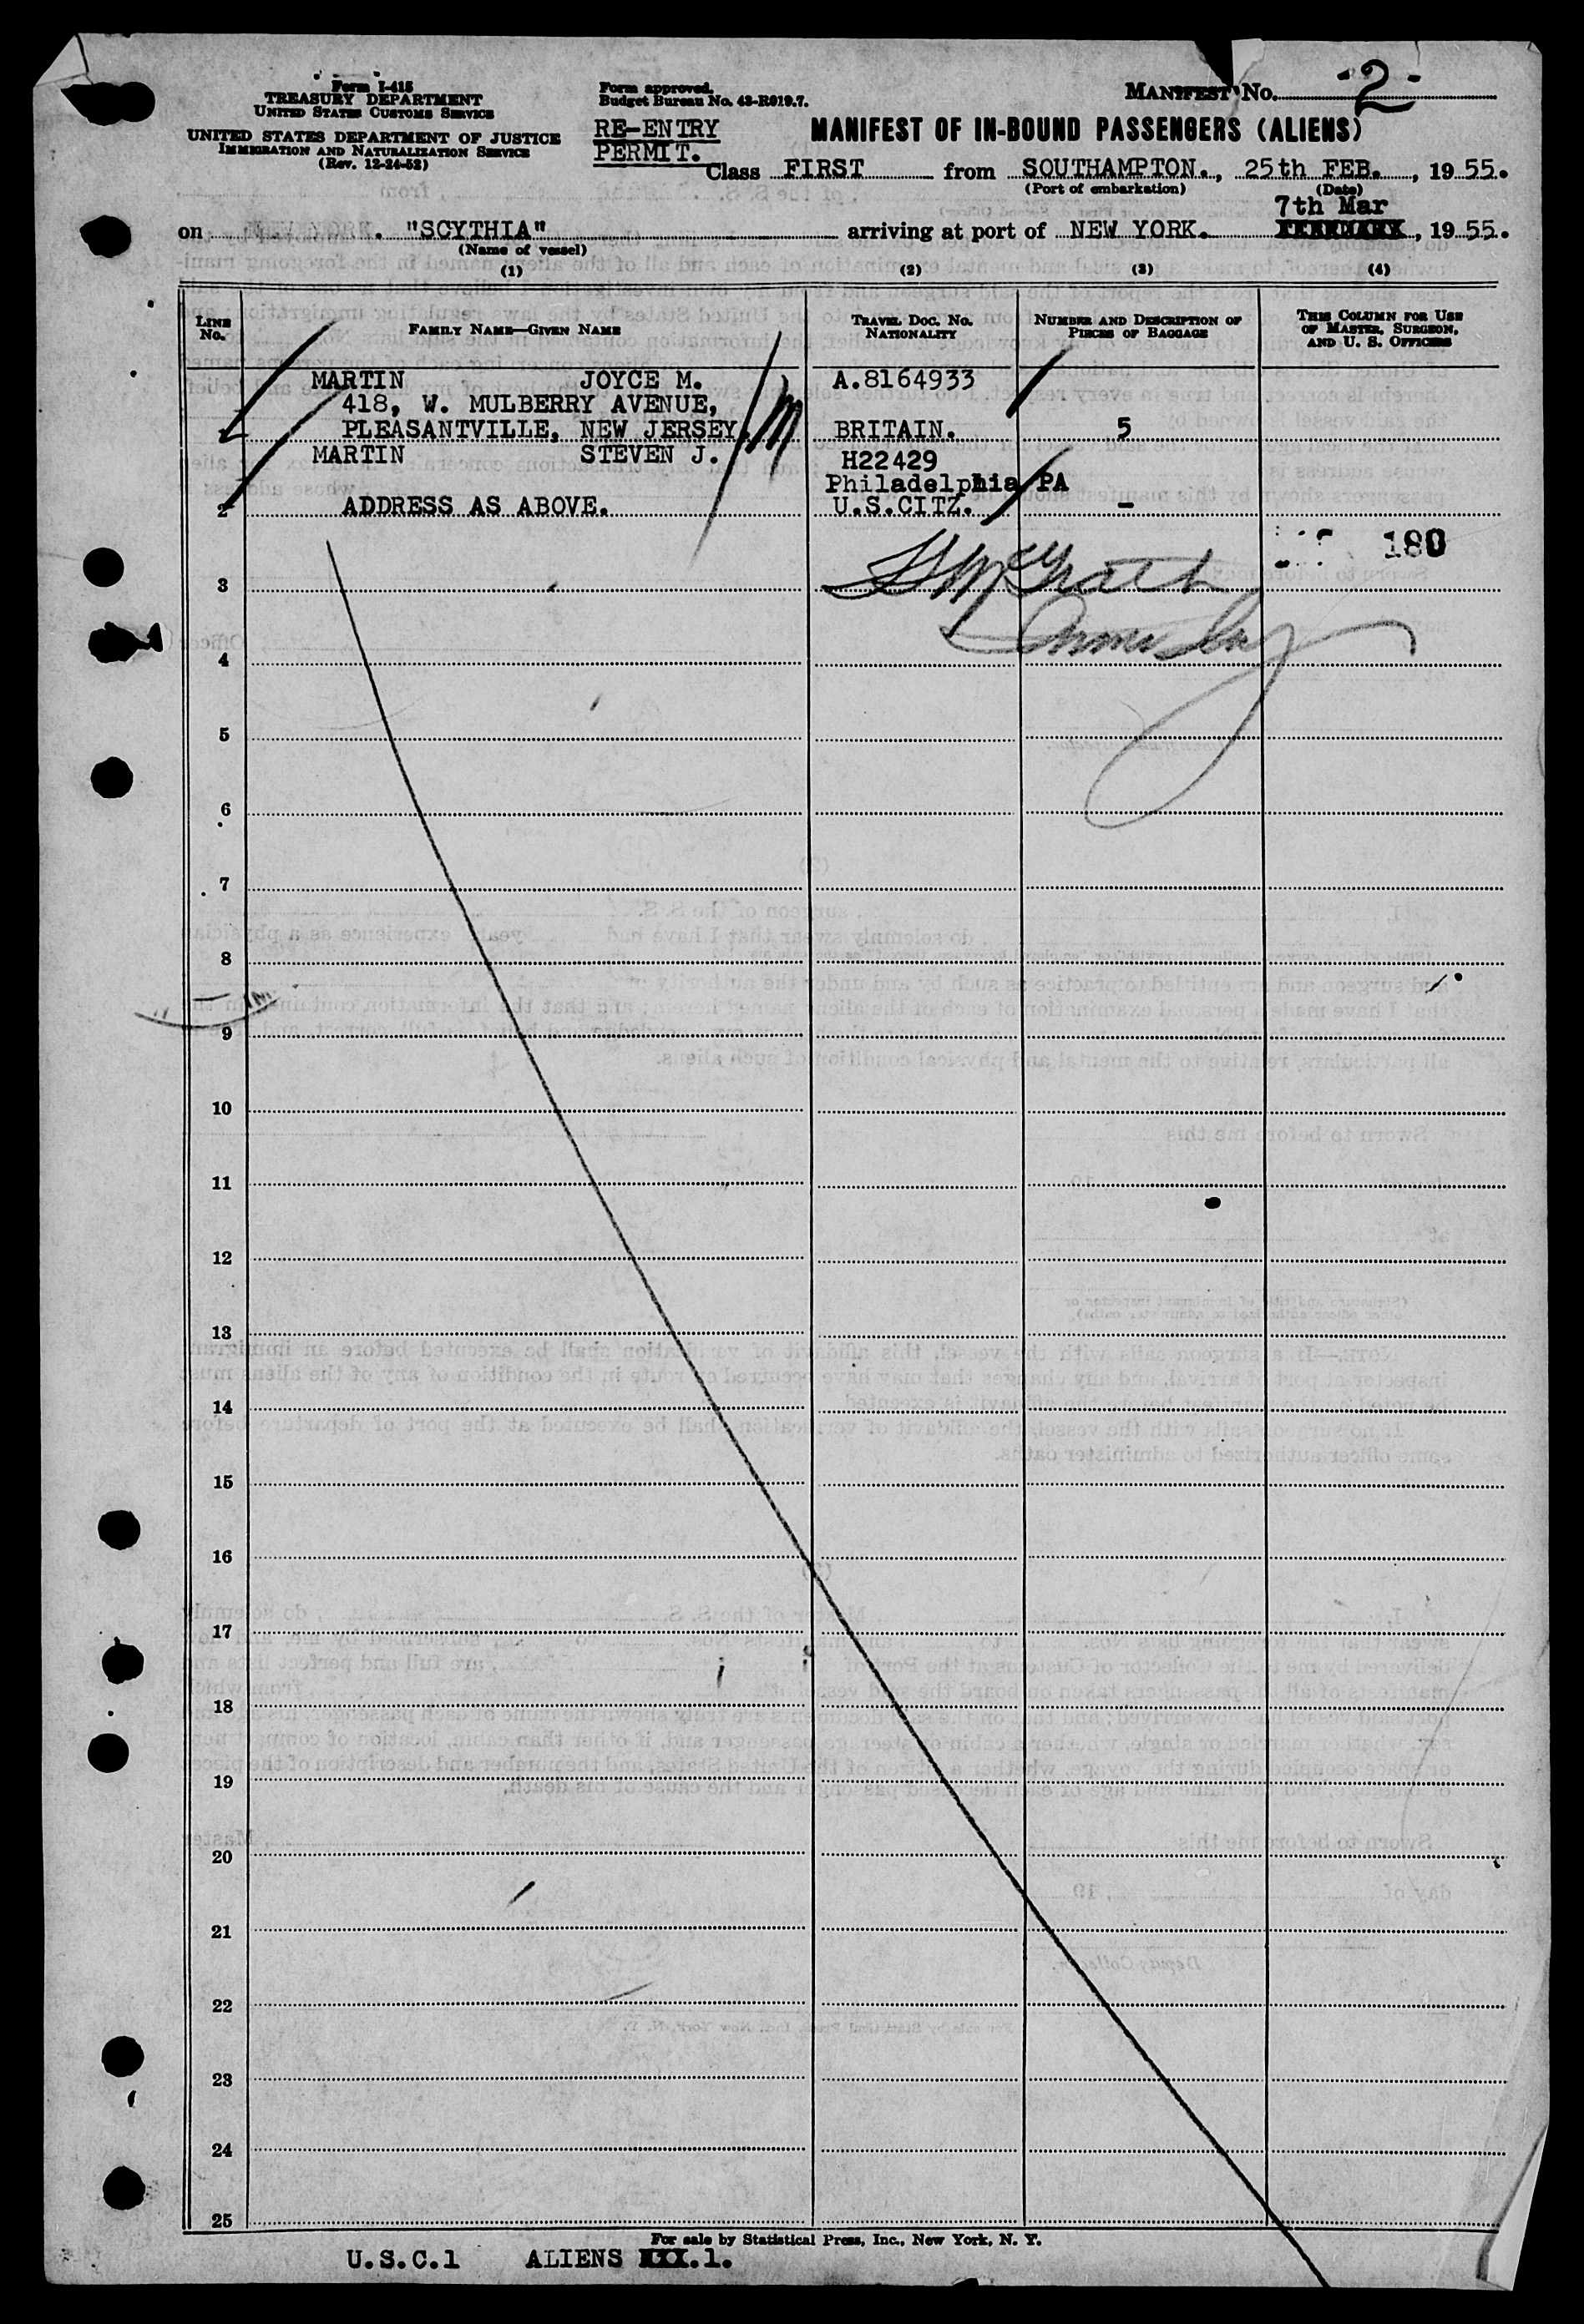 Form I-415
TREASURY DEPARTMENT
UNITED STATES CUSTOMS SERVICE
UNITED STATES DEPARTMENT OF JUSTICE
IMMIGRATION AND NATURALIZATION SERVICE
(Rev. 12-24-52)
Form approved.
Budget Bureau No. 43-R019.7.
RE-ENTRY
PERMIT.
MANIFEST No. 2
MANIFEST OF IN-BOUND PASSENGERS (ALIENS)
Class FIRST from SOUTHAMPTON., 25th FEB., 1955.
(Port of embarkation) (Date)
7th Mar
on "SCYTHIA" arriving at port of NEW YORK. , 1955.
(Name of vessel)
(1) (2) (3) (4)
LINE No. FAMILY NAME—GIVEN NAME TRAVEL DOC. NO. NATIONALITY NUMBER AND DESCRIPTION OF PIECES OF BAGGAGE THIS COLUMN FOR USE OF MASTER, SURGEON, AND U. S. OFFICERS
MARTIN JOYCE M. A.8164933
418, W. MULBERRY AVENUE,
1 PLEASANTVILLE, NEW JERSEY. BRITAIN. 5
MARTIN STEVEN J. H22429
Philadelphia PA
2 ADDRESS AS ABOVE. U.S.CITZ. -
180
3
4
5
6
7
8
9
10
11
12
13
14
15
16
17
18
19
20
21
22
23
24
25
For sale by Statistical Press, Inc., New York, N. Y.
U.S.C.1 ALIENS .1.